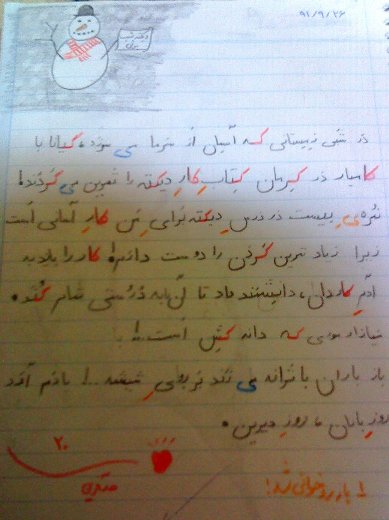 ۹۱/۹/۲۶
در شبی زمستانی که آسمان از سرما می سوزد، کیانا با
کامیار در کرمان کتاب کار دیکته را تمرین می کردند!
نمره ی بیست در درس دیکته برای من کار آسانی است
زیرا زیاد تمرین کردن را دوست دارم! کار را باید به
آدم کاردان، دانشمند داد تا آن را به درستی تمام کند.
میازار موری که دانه کش است..!
باز باران با ترانه می زند بر بوی شیشه..! یادم آمد
روز باران، روز دیرین.
۲۰
۱ بار رو خوانی شد!